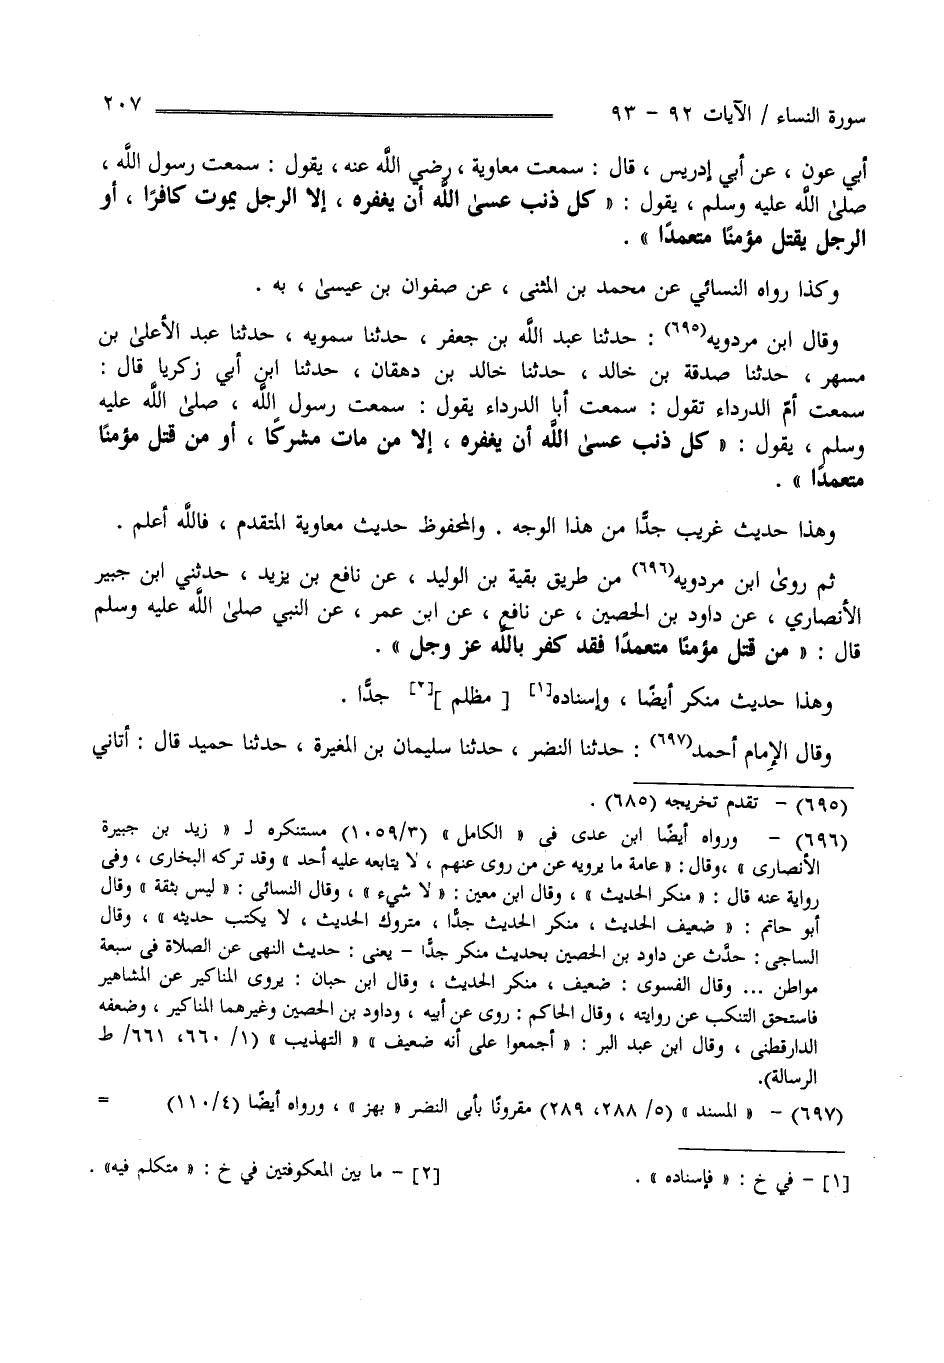 سورة النساء / الآيات ٩٢ - ٩٣ ٢٠٧
أبي عون ، عن أبي إدريس ، قال : سمعت معاوية ، رضي الله عنه ، يقول : سمعت رسول اللَّه ،
صلىٰ اللَّه عليه وسلم ، يقول : « كل ذنب عسىٰ اللَّه أن يغفره ، إلا الرجل يموت كافرًا ، أو
الرجل يقتل مؤمنًا متعمدًا » .
وكذا رواه النسائي عن محمد بن المثنى ، عن صفوان بن عيسىٰ ، به .
وقال ابن مردويه(٦٩٥) : حدثنا عبد اللَّه بن جعفر ، حدثنا سمويه ، حدثنا عبد الأعلىٰ بن
مسهر ، حدثنا صدقة بن خالد ، حدثنا خالد بن دهقان ، حدثنا ابن أبي زكريا قال :
سمعت أمّ الدرداء تقول : سمعت أبا الدرداء يقول : سمعت رسول اللَّه ، صلىٰ اللَّه عليه
وسلم ، يقول : « كل ذنب عسىٰ اللَّه أن يغفره ، إلا من مات مشركًا ، أو من قتل مؤمنًا
متعمدًا » .
وهذا حديث غريب جدًّا من هذا الوجه . والمحفوظ حديث معاوية المتقدم ، فاللَّه أعلم .
ثم روىٰ ابن مردويه(٦٩٦) من طريق بقية بن الوليد ، عن نافع بن يزيد ، حدثني ابن جبير
الأنصاري ، عن داود بن الحصين ، عن نافع ، عن ابن عمر ، عن النبي صلىٰ اللَّه عليه وسلم
قال : « من قتل مؤمنًا متعمدًا فقد كفر باللَّه عز وجل » .
وهذا حديث منكر أيضًا ، وإسناده[١] [ مظلم ][٢] جدًّا .
وقال الإمام أحمد(٦٩٧) : حدثنا النضر ، حدثنا سليمان بن المغيرة ، حدثنا حميد قال : أتاني
(٦٩٥) - تقدم تخريجه (٦٨٥) .
(٦٩٦) - ورواه أيضًا ابن عدى فى « الكامل » (١٠٥٩/٣) مستنكره لـ « زيد بن جبيرة
الأنصارى » ،وقال : « عامة ما يرويه عن من روى عنهم ، لا يتابعه عليه أحد » وقد تركه البخارى ، وفى
رواية عنه قال : « منكر الحديث » ، وقال ابن معين : « لا شيء » ، وقال النسائى : « ليس بثقة » وقال
أبو حاتم : « ضعيف الحديث ، منكر الحديث جدًّا ، متروك الحديث ، لا يكتب حديثه » ، وقال
الساجى : حدَّث عن داود بن الحصين بحديث منكر جدًّا - يعنى : حديث النهى عن الصلاة فى سبعة
مواطن ... وقال الفسوى : ضعيف ، منكر الحديث ، وقال ابن حبان : يروى المناكير عن المشاهير
فاستحق التنكب عن روايته ، وقال الحاكم : روى عن أبيه ، وداود بن الحصين وغيرهما المناكير ، وضعفه
الدارقطنى ، وقال ابن عبد البر : « أجمعوا على أنه ضعيف » « التهذيب » (١/ ٦٦٠، ٦٦١/ ط
الرسالة).
(٦٩٧) - « المسند » (٥/ ٢٨٨، ٢٨٩) مقرونًا بأبى النضر « بهز » ، ورواه أيضًا (١١٠/٤) =
[١] - في خ : « فإسناده » . [٢] - ما بين المعكوفتين في خ : « متكلم فيه» .